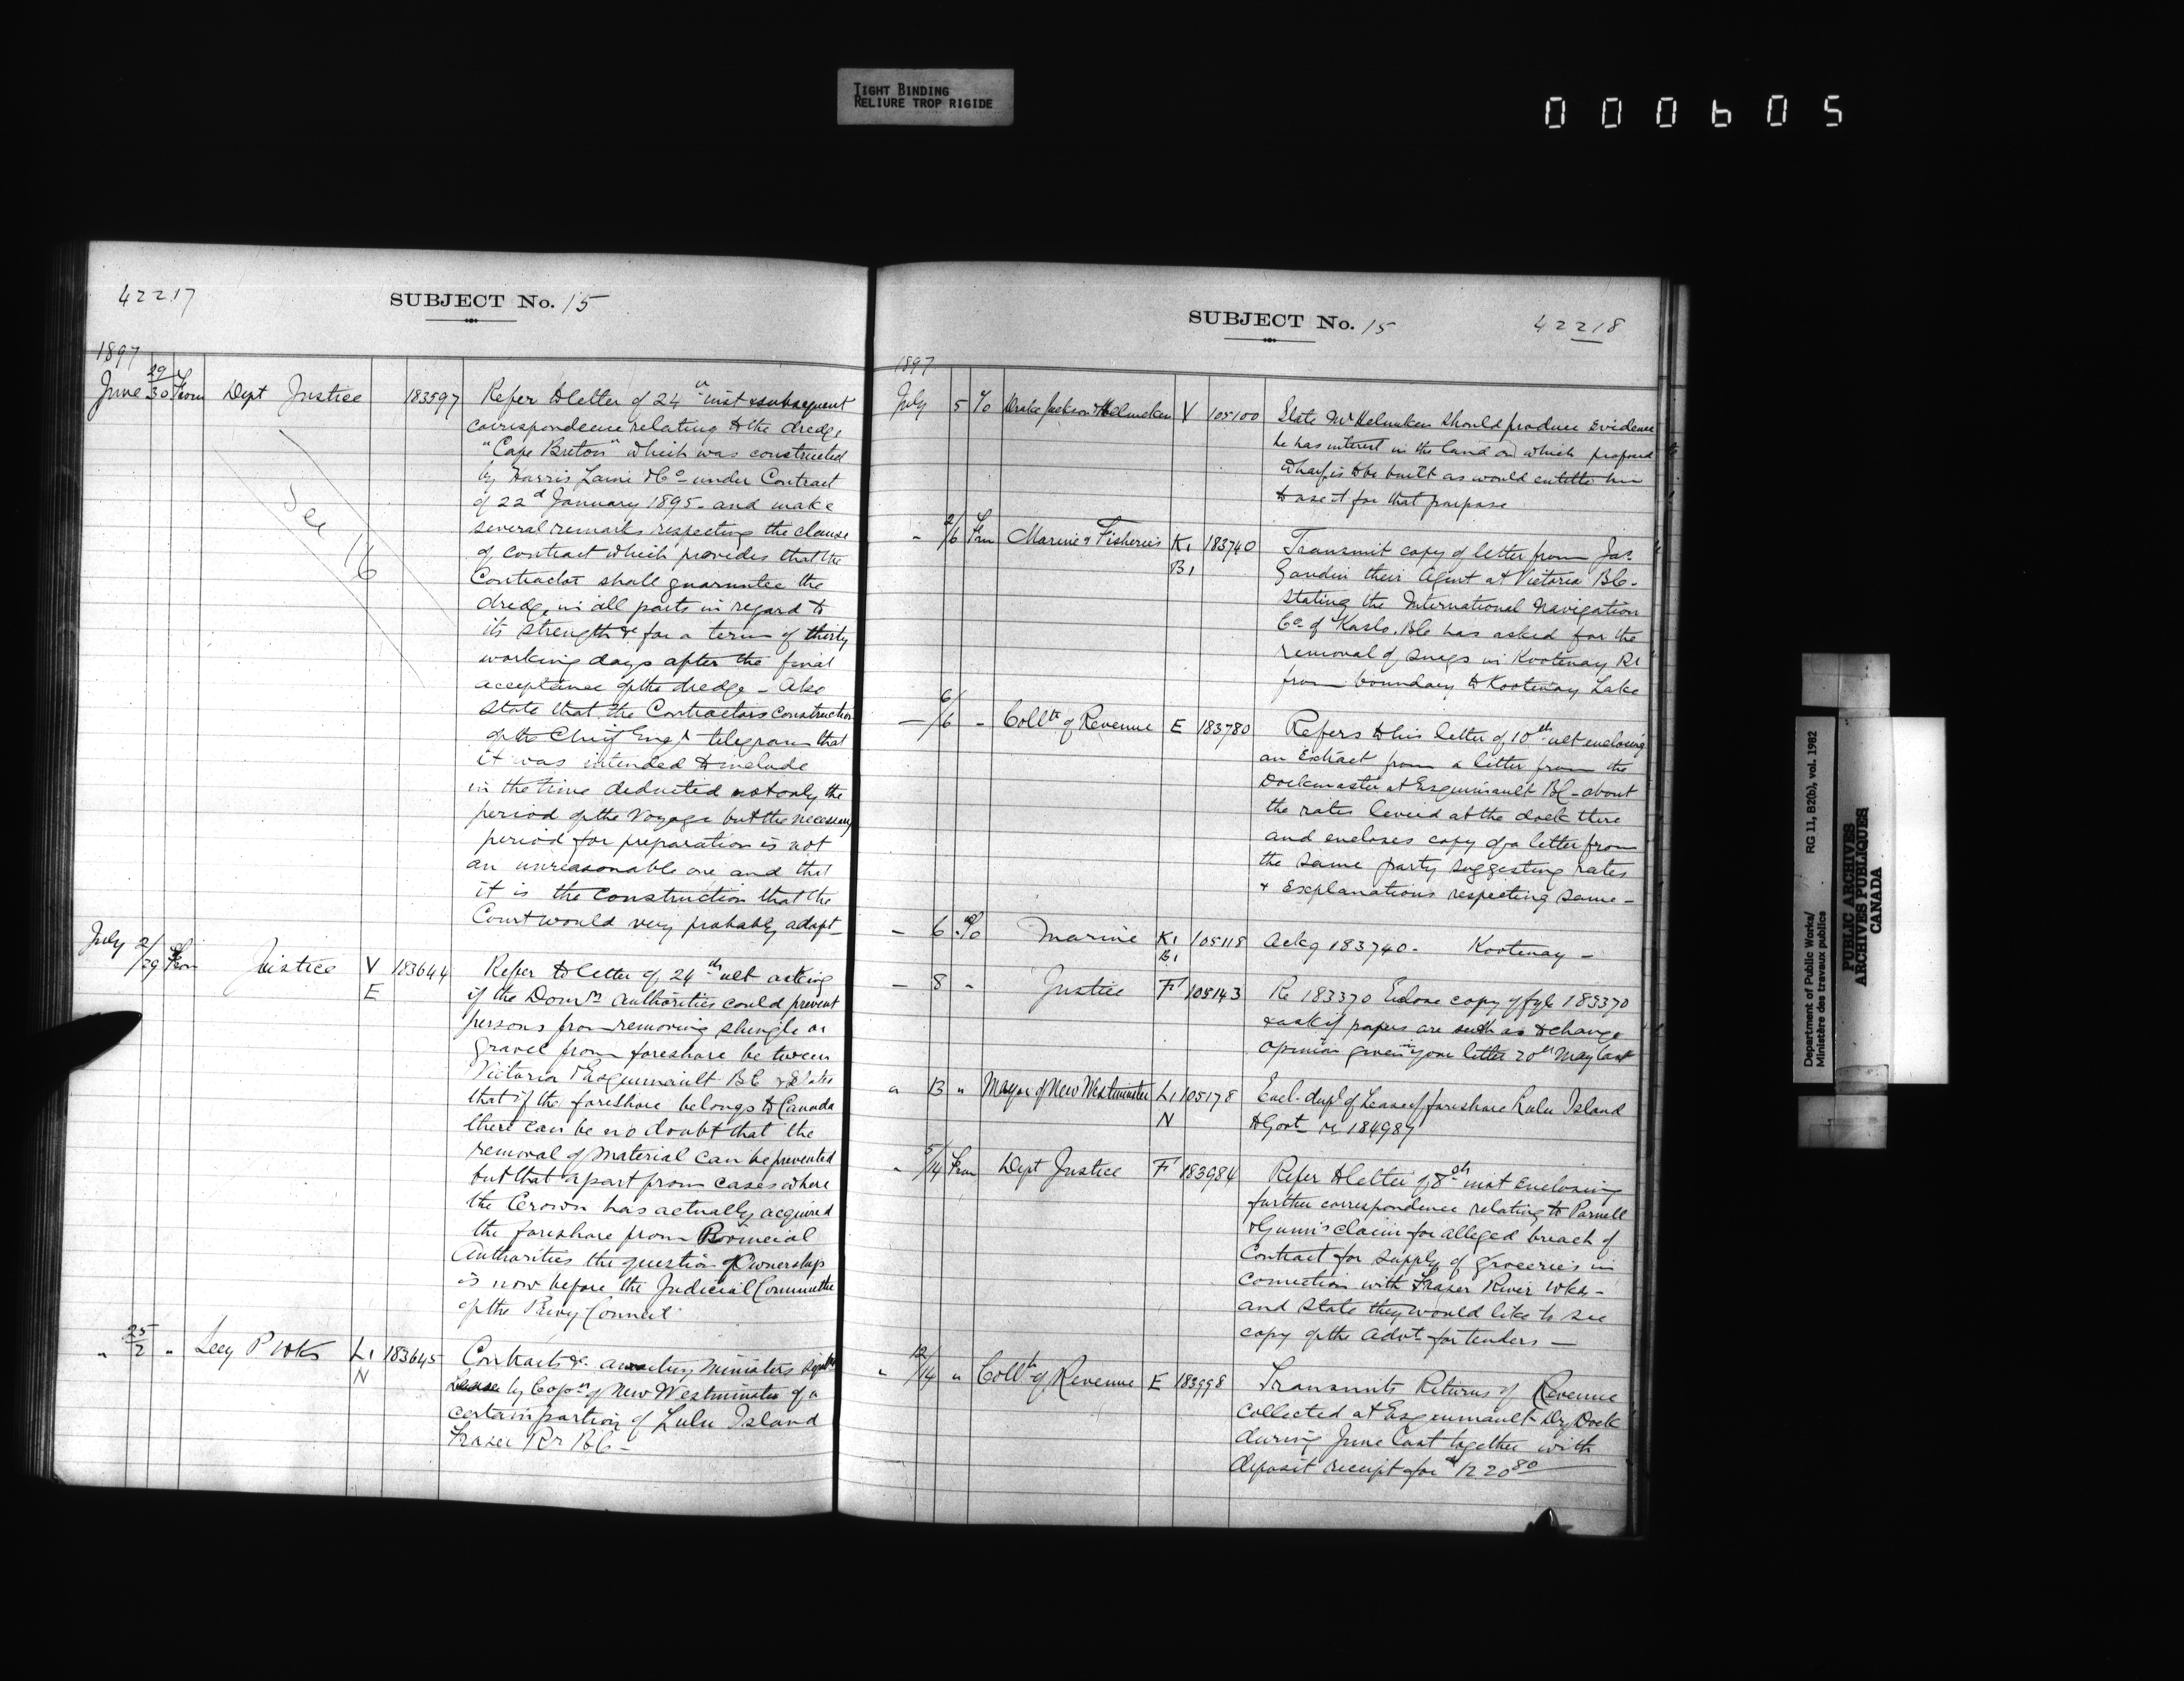 TIGHT BINDING
RELIURE TROP RIGIDE
000605
42217
SUBJECT No. 15
1897
June 29/30 From Dept Justice 183597 Refer to letter of 24th inst & subsequent
correspondence relating to the dredge
"Cape Breton" which was constructed
by Harris & Co under Contract
of 22d January 1895 - and make
several remarks respecting the clause
of contract which provides that the
Contractor shall guarantee the
dredge in all parts in regard to
its strength &c for a term of thirty
working days after the final
acceptance of the dredge - Also
state that the Contractors construction
of the Chief Engr telegram that
it was intended to include
in the time deducted not only the
period of the Voyage but the necessary
period for preparation is not
an unreasonable one and that
it is the construction that the
Court would very probably adopt -
See 16
July 2/29 From Justice V E 183644 Refer to letter of 24th ult asking
if the Domn Authorities could prevent
persons from removing shingle or
gravel from foreshore between
Victoria & Esquimault BC & States
that if the foreshore belongs to Canada
there can be no doubt that the
removal of Material can be prevented
but that apart from cases where
the Crown has actually acquired
the foreshore from Provincial
Authorities the question of Ownership
is now before the Judicial Committee
of the Privy Council
" 25/2 " Secy P Wks L1 N 183645 Contracts &c Ministers
by Corpn of New Westminster of a
certain portion of Lulu Island
Fraser Rr BC -
SUBJECT No. 15
42218
1897
July 5 To Drake Jackson & Helmcken V 105100 State Mr Helmcken should produce Evidence
he has interest in the land on which proposed
Wharf is to be built as would entitle him
to use it for that purpose
" 2/6 From Marine & Fisheries K1 B1 183740 Transmit copy of letter from Jas.
Gaudin their Agent at Victoria BC -
stating the International Navigation
Co of Kaslo. BC has asked for the
removal of snags in Kootenay Rr
from boundary to Kootenay Lake
— 6/6 - Collr of Revenue E 183780 Refers to his letter of 10th ult enclosing
an Extract from a letter from the
Dockmaster at Esquimault BC - about
the rates levied at the dock there
and encloses copy of a letter from
the same party suggesting rates
& Explanations respecting same -
— 6 To Marine K1 B1 105118 Ackg 183740 - Kootenay -
— 8 - Justice F 105143 Re 183370 Enclose copy of fyle 183370
& ask if papers are such as to change
opinion given in your letter 20th May last
" 13 " Mayor of New Westminster L1 N 105178 Encl. dupl of Lease of foreshore Lulu Island
to Govt re 184987
" 5/14 From Dept Justice F 183984 Refer to letter of 8th inst Enclosing
further correspondence relating to Parnell
& Gunn's claim for alleged breach of
Contract for supply of groceries in
connection with Fraser River Wks -
and state they would like to see
copy of the Advt for tenders —
" 12/14 " Collr of Revenue E 183998 Transmits Returns of Revenue
collected at Esquimault Dry Dock
during June last together with
deposit receipt for $1220 80
Department of Public Works/
Ministère des travaux publics
RG 11, B2(b), vol. 1982
PUBLIC ARCHIVES
ARCHIVES PUBLIQUES
CANADA